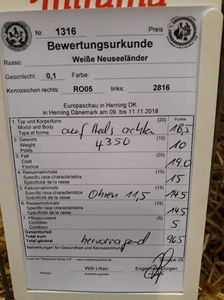 Nr. 1316 Preis
Bewertungsurkunde
Rasse: Weiße Neuseeländer
Geschlecht: 0,1 Farbe:
Kennzeichen rechts: RO05 links: 2816
Europaschau in Herning DK
in Herning Dänemark am 09. bis 11.11.2018
1. Typ und Körperform Punkte
Model and Body
Type et forme 18,5
2. Gewicht 4350
Weight
Poids 10
3. Fell
Coat
Fourrure 19.0
4. Rassemerkmale
Specific race characteristics
Spécificité de la race 15
5. Rassemerkmale Ohren 11,5
Specific race characteristics
Spécificité de la race 14.5
6. Rassemerkmale
Specific race characteristics
Spécificité de la race 14.5
7. Pflegezustand
Condition
Condition 5
Gesamt
Total sum
Total général hervorragend 96.5
Bemerkungen für Gesundheit und Kennzeichnung
Willi Littau